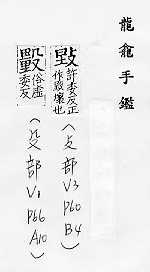 龍龕手鑑
許委反正
作毀壞也
(支部 V3 P60 B4)
俗虛
委反
(殳部 V1 P66 A10)